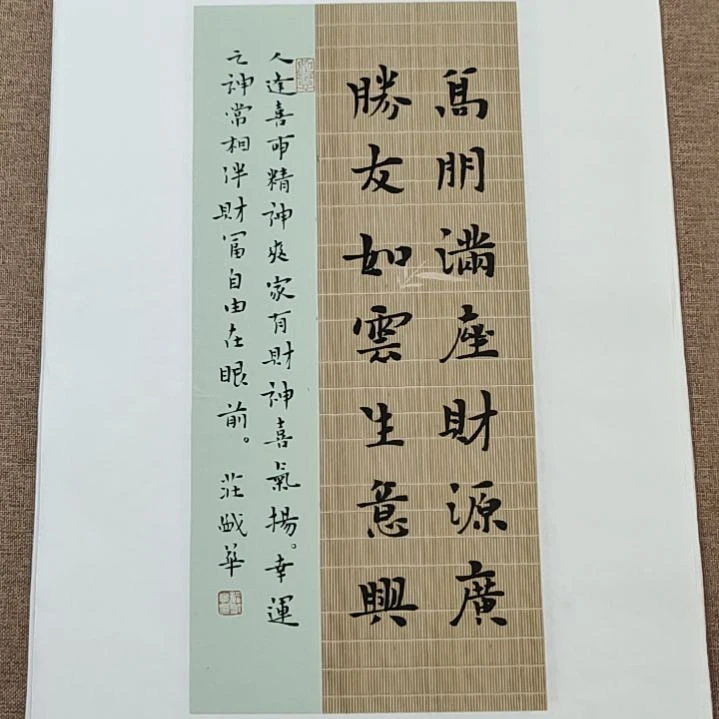 高朋滿座財源廣
勝友如雲生意興
人逢喜事精神爽家有財神喜氣揚。幸運
之神常相伴財富自由在眼前。
莊華